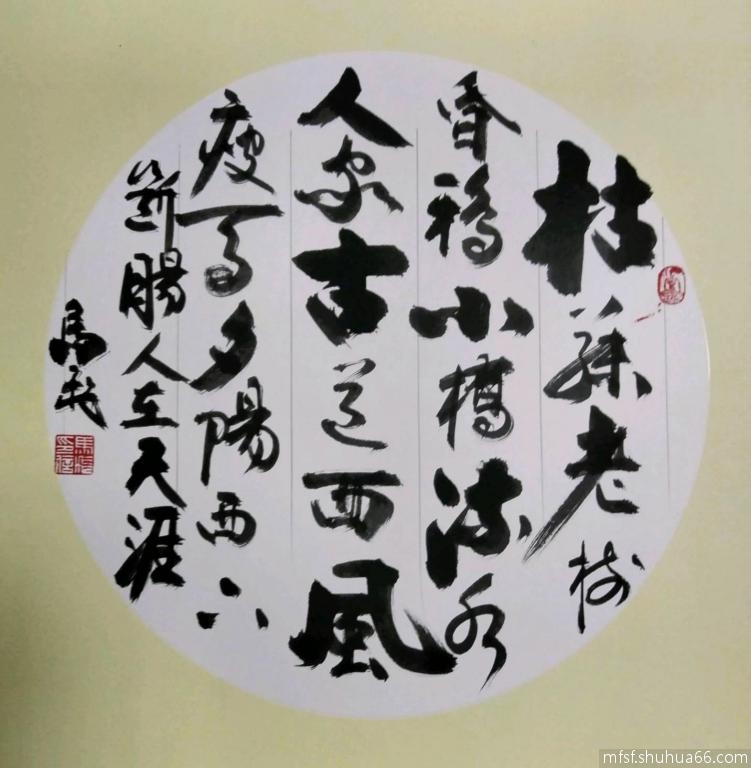 枯藤老樹
昏鴉小橋流水
人家古道西風
瘦馬夕陽西下
斷腸人在天涯
馬飛
mfsf.shuhua66.com